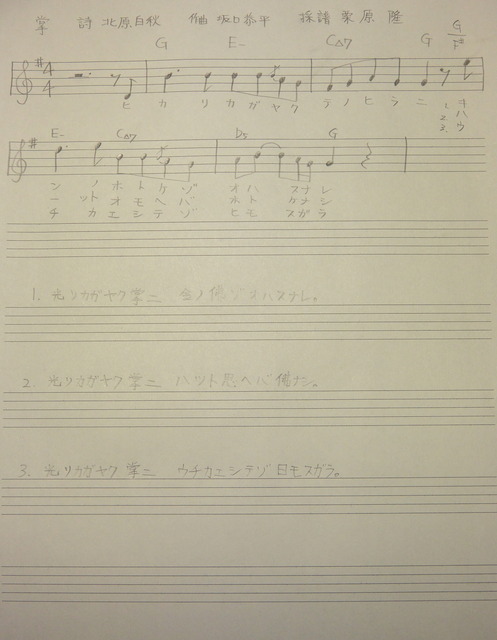 掌 詩 北原白秋 作曲 坂口恭平 採譜 栗原 隆
G E- C△7 G G/F#
4/4
ヒ カ リ カ ガ ヤ ク テ ノ ヒ ラ ニ 1. オ
2. ハ
3. ウ
E- C△7 D5 G
ン ノ ホ ト ケ ゾ オ ハ スナレ
ー ット オ モ ヘ バ ホ ト ケナシ
チ カ エ シ テ ゾ ヒ モ スガラ
1. 光リカガヤク掌ニ 金ノ佛ゾオハスナレ。
2. 光リカガヤク掌ニ ハツト思ヘバ佛ナシ。
3. 光リカガヤク掌ニ ウチカニシテゾ日モスガラ。